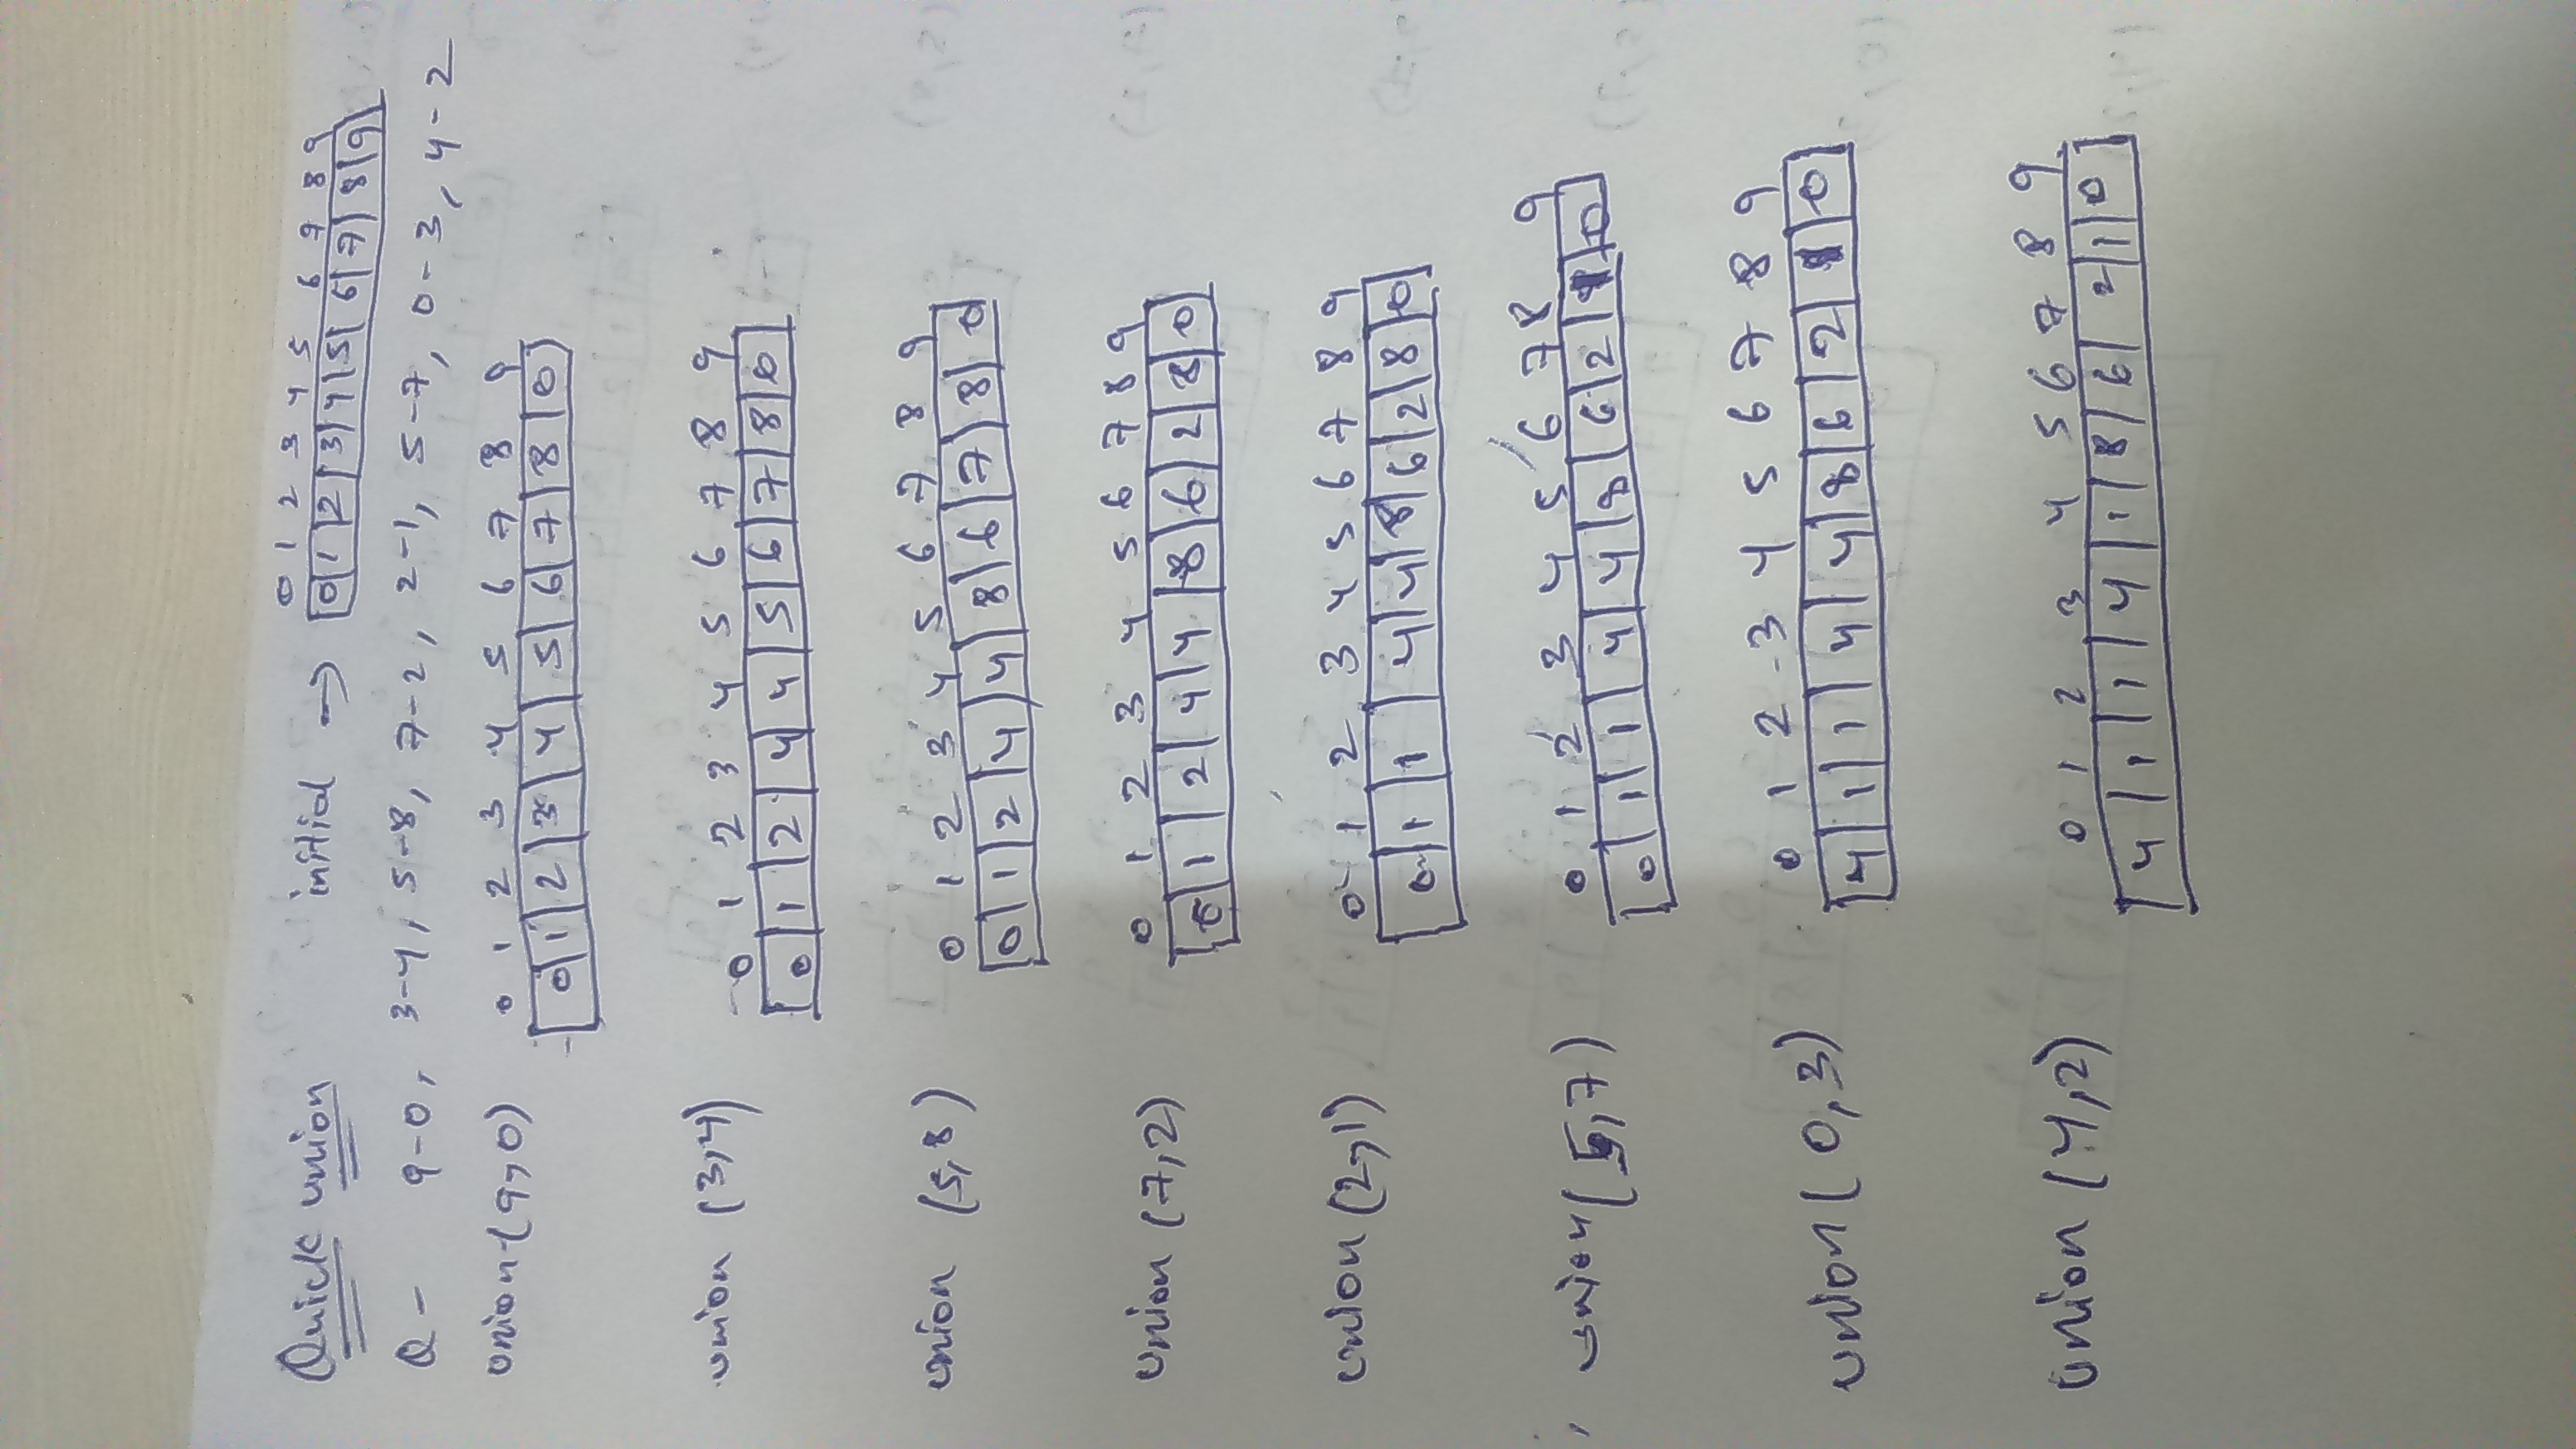 Quick union initial → 0 1 2 3 4 5 6 7 8 9
0 1 2 3 4 5 6 7 8 9
Q - 9-0, 3-4, 5-8, 7-2, 2-1, 5-7, 0-3, 4-2
union (9,0) 0 1 2 3 4 5 6 7 8 9
0 1 2 3 4 5 6 7 8 0
union (3,4) 0 1 2 3 4 5 6 7 8 9
0 1 2 4 4 5 6 7 8 0
union (5,8) 0 1 2 3 4 5 6 7 8 9
0 1 2 4 4 8 6 7 8 0
union (7,2) 0 1 2 3 4 5 6 7 8 9
0 1 2 4 4 8 6 2 8 0
union (2,1) 0 1 2 3 4 5 6 7 8 9
0 1 1 4 4 8 6 2 8 0
union (5,7) 0 1 2 3 4 5 6 7 8 9
0 1 1 4 4 8 6 2 1 0
union (0,3) 0 1 2 3 4 5 6 7 8 9
4 1 1 4 4 8 6 2 1 0
union (4,2) 0 1 2 3 4 5 6 7 8 9
4 1 1 4 1 8 6 2 1 0